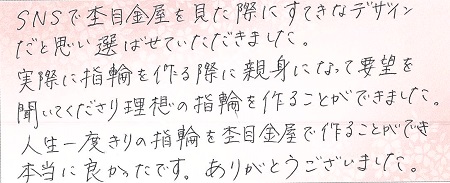 SNSで杢目金屋を見た際にすてきなデザイン
だと思い選ばせていただきました。
実際に指輪を作る際に親身になって要望を
聞いてくださり理想の指輪を作ることができました。
人生一度きりの指輪を杢目金屋で作ることができ
本当に良かったです。ありがとうございました。